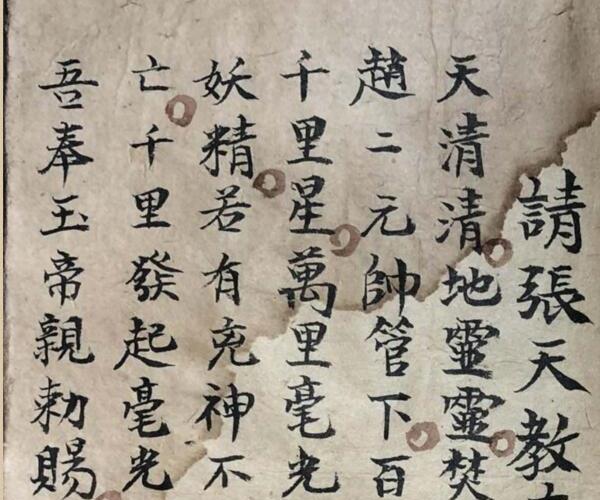 請張天教
天清清地靈靈焚
趙二元帥管下百
千里星萬里毫光
妖精若有兇神不
亡千里發起毫光
吾奉玉帝親勅賜